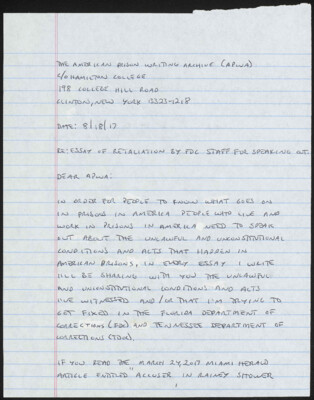 THE AMERICAN PRISON WRITING ARCHIVE (APWA)
C/O HAMILTON COLLEGE
198 COLLEGE HILL ROAD
CLINTON, NEW YORK 13323-1218
DATE: 8/18/17
RE: ESSAY OF RETALIATION BY FDC STAFF FOR SPEAKING OUT.
DEAR APWA:
IN ORDER FOR PEOPLE TO KNOW WHAT GOES ON
IN PRISONS IN AMERICA PEOPLE WHO LIVE AND
WORK IN PRISONS IN AMERICA NEED TO SPEAK
OUT ABOUT THE UNLAWFUL AND UNCONSTITUTIONAL
CONDITIONS AND ACTS THAT HAPPEN IN
AMERICAN PRISONS, IN EVERY ESSAY I WRITE
I'LL BE SHARING WITH YOU THE UNLAWFUL
AND UNCONSTITUTIONAL CONDITIONS AND ACTS
I'VE WITNESSED AND/OR THAT I'M TRYING TO
GET FIXED IN THE FLORIDA DEPARTMENT OF
CORRECTIONS (FDC) AND TENNESSEE DEPARTMENT OF
CORRECTIONS (TDOC).
IF YOU READ THE MARCH 24, 2017 MIAMI HERALD
ARTICLE ENTITLED "ACCUSER IN RAINEY SHOWER
1